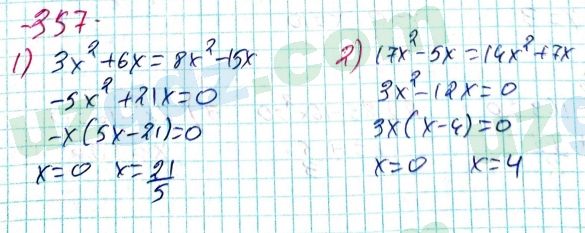 -357-
1) 3x² + 6x = 8x² - 15x
-5x² + 21x = 0
-x(5x - 21) = 0
x = 0 x = 21/5
2) 17x² - 5x = 14x² + 7x
3x² - 12x = 0
3x(x - 4) = 0
x = 0 x = 4